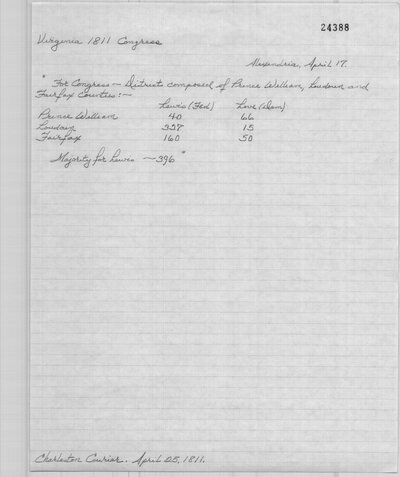 24388
Virginia 1811 Congress
Alexandria, April 17.
" For Congress — District composed of Prince William, Loudoun and
Fairfax Counties: —
Lewis (Fed) Love (Dem)
Prince William 40 66
Loudoun 327 15
Fairfax 160 50
Majority for Lewis — 396 "
Charleston Courier. April 25, 1811.